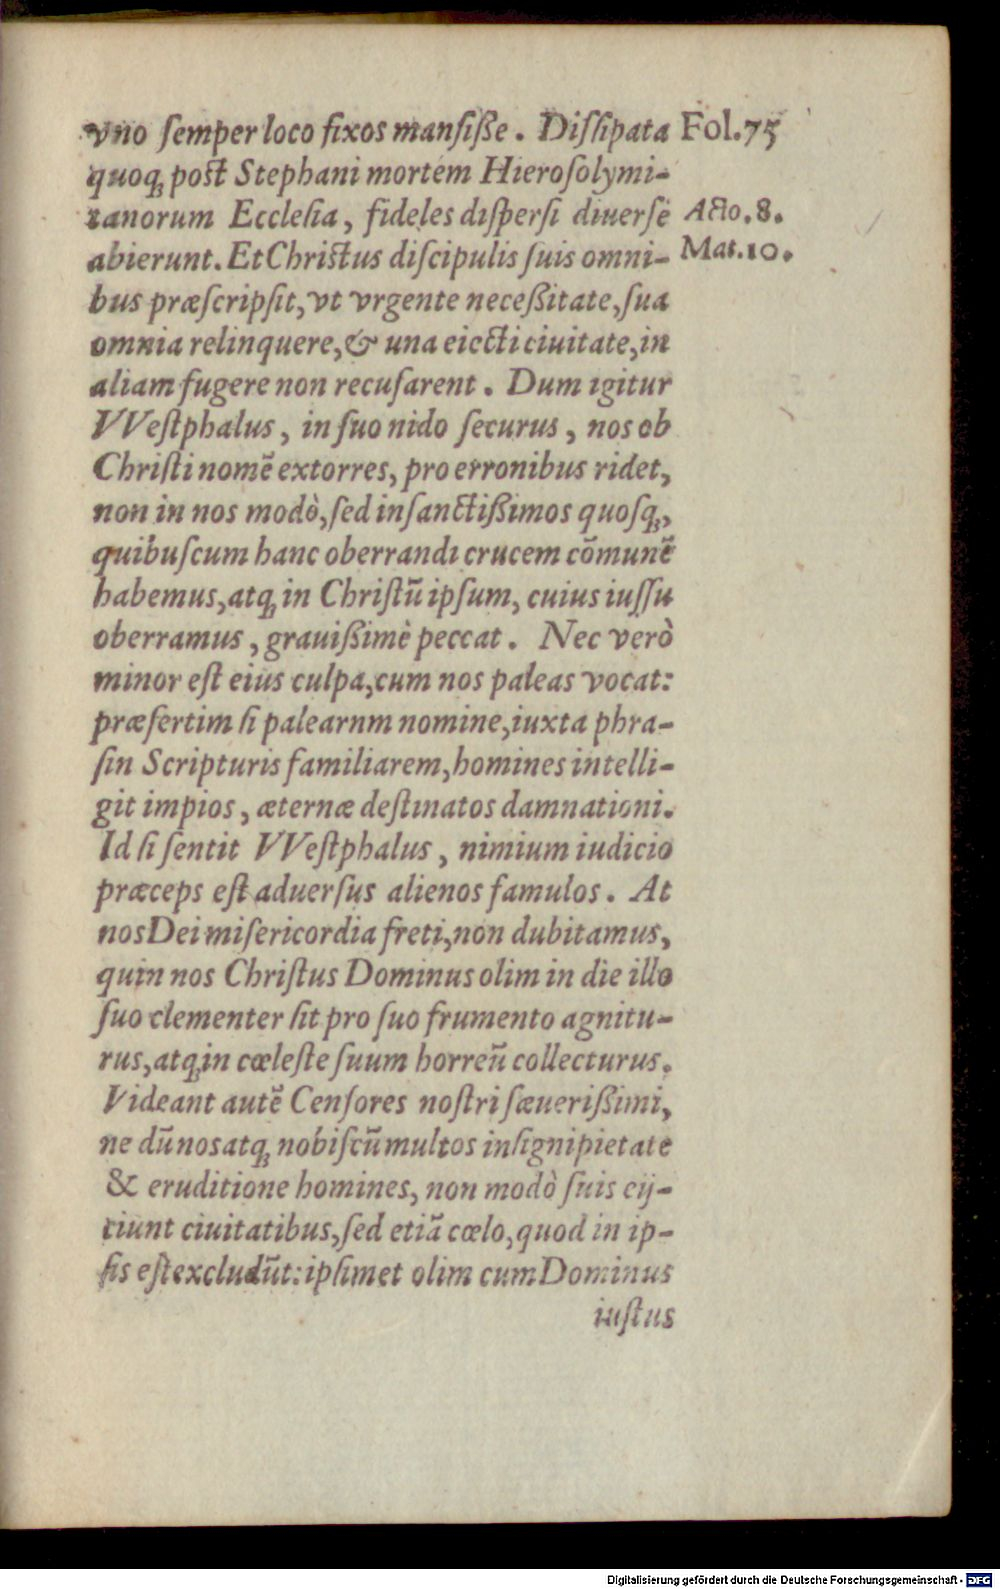 vno ſemper loco fixos manſiſſe. Diſſipata Fol.75
quoq; poſt Stephani mortem Hieroſolymi-
tanorum Eccleſia, fideles diſperſi diuersè Acto.8.
abierunt. Et Chriſtus diſcipulis ſuis omni- Mat.10.
bus præſcripſit, vt vrgente neceßitate, ſua
omnia relinquere, & una eiecti ciuitate, in
aliam fugere non recuſarent. Dum igitur
VVeſtphalus, in ſuo nido ſecurus, nos ob
Chriſti nomē extorres, pro erronibus ridet,
non in nos modò, ſed in ſanctißimos quoſq;,
quibuſcum hanc oberrandi crucem cōmunē
habemus, atq; in Chriſtū ipſum, cuius iuſſu
oberramus, grauißimè peccat. Nec verò
minor eſt eius culpa, cum nos paleas vocat:
præſertim ſi palearnm nomine, iuxta phra-
ſin Scripturis familiarem, homines intelli-
git impios, æternæ deſtinatos damnationi.
Id ſi ſentit VVeſtphalus, nimium iudicio
præceps eſt aduerſus alienos famulos. At
nos Dei miſericordia freti, non dubitamus,
quin nos Chriſtus Dominus olim in die illo
ſuo clementer ſit pro ſuo frumento agnitu-
rus, atq; in cœleſte ſuum horreū collecturus.
Videant autē Cenſores noſtri ſæuerißimi,
ne dū nos atq; nobiſcū multos inſigni pietate
& eruditione homines, non modò ſuis eij-
ciunt ciuitatibus, ſed etiā cœlo, quod in ip-
ſis eſt excludūt: ipſimet olim cum Dominus
iuſtus
Digitalisierung gefördert durch die Deutsche Forschungsgemeinschaft - DFG